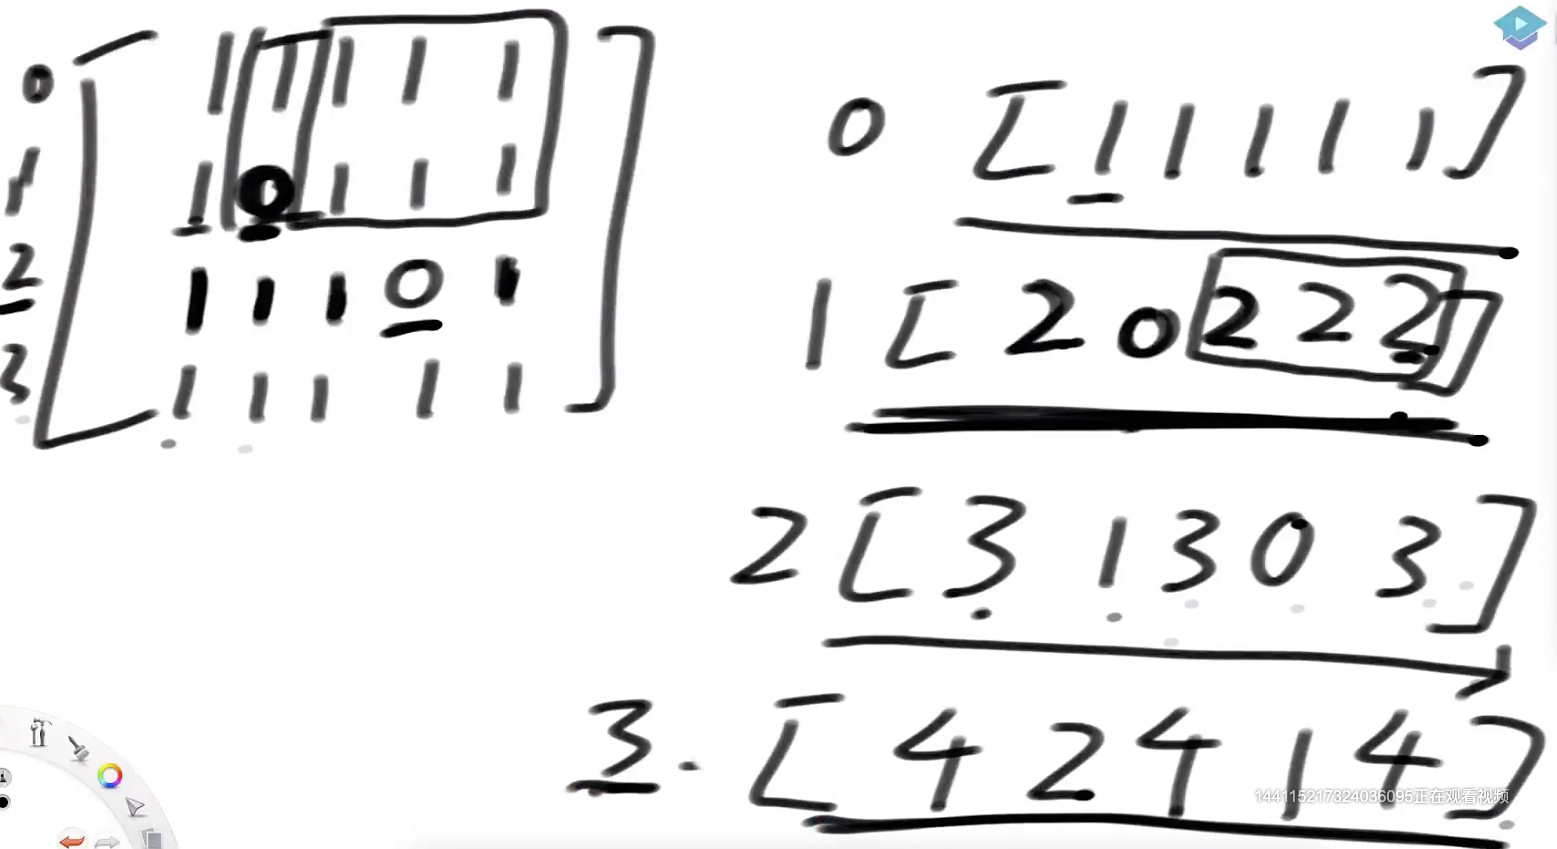 0 [ 1 1 1 1 1 ]
1 1 0 1 1 1
2 1 1 1 0 1
3 1 1 1 1 1
0 [ 1 1 1 1 1 ]
1 [ 2 0 2 2 2 ]
2 [ 3 1 3 0 3 ]
3. [ 4 2 4 1 4 ]
144115217324036095正在观看视频